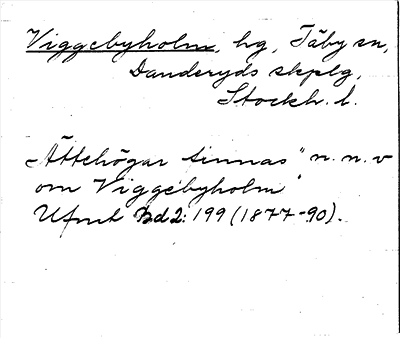 Viggebyholm, hg, Täby sn,
Danderyds skplg,
Stockh. l.
Ättehögar finnas "n.n.v
om Viggebyholm"
Ufmt Bd 2: 199 (1877-90).